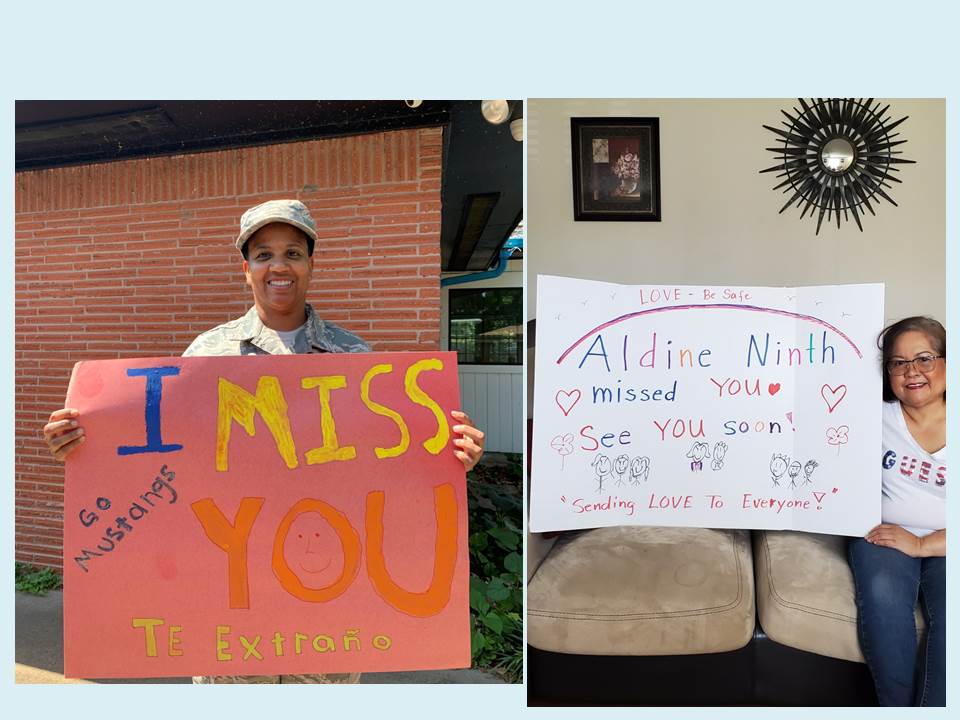 I MISS
YOU
Go
Mustangs
TE Extraño
LOVE - Be Safe
Aldine Ninth
missed YOU
See YOU soon!
"Sending LOVE To Everyone!"
GUES